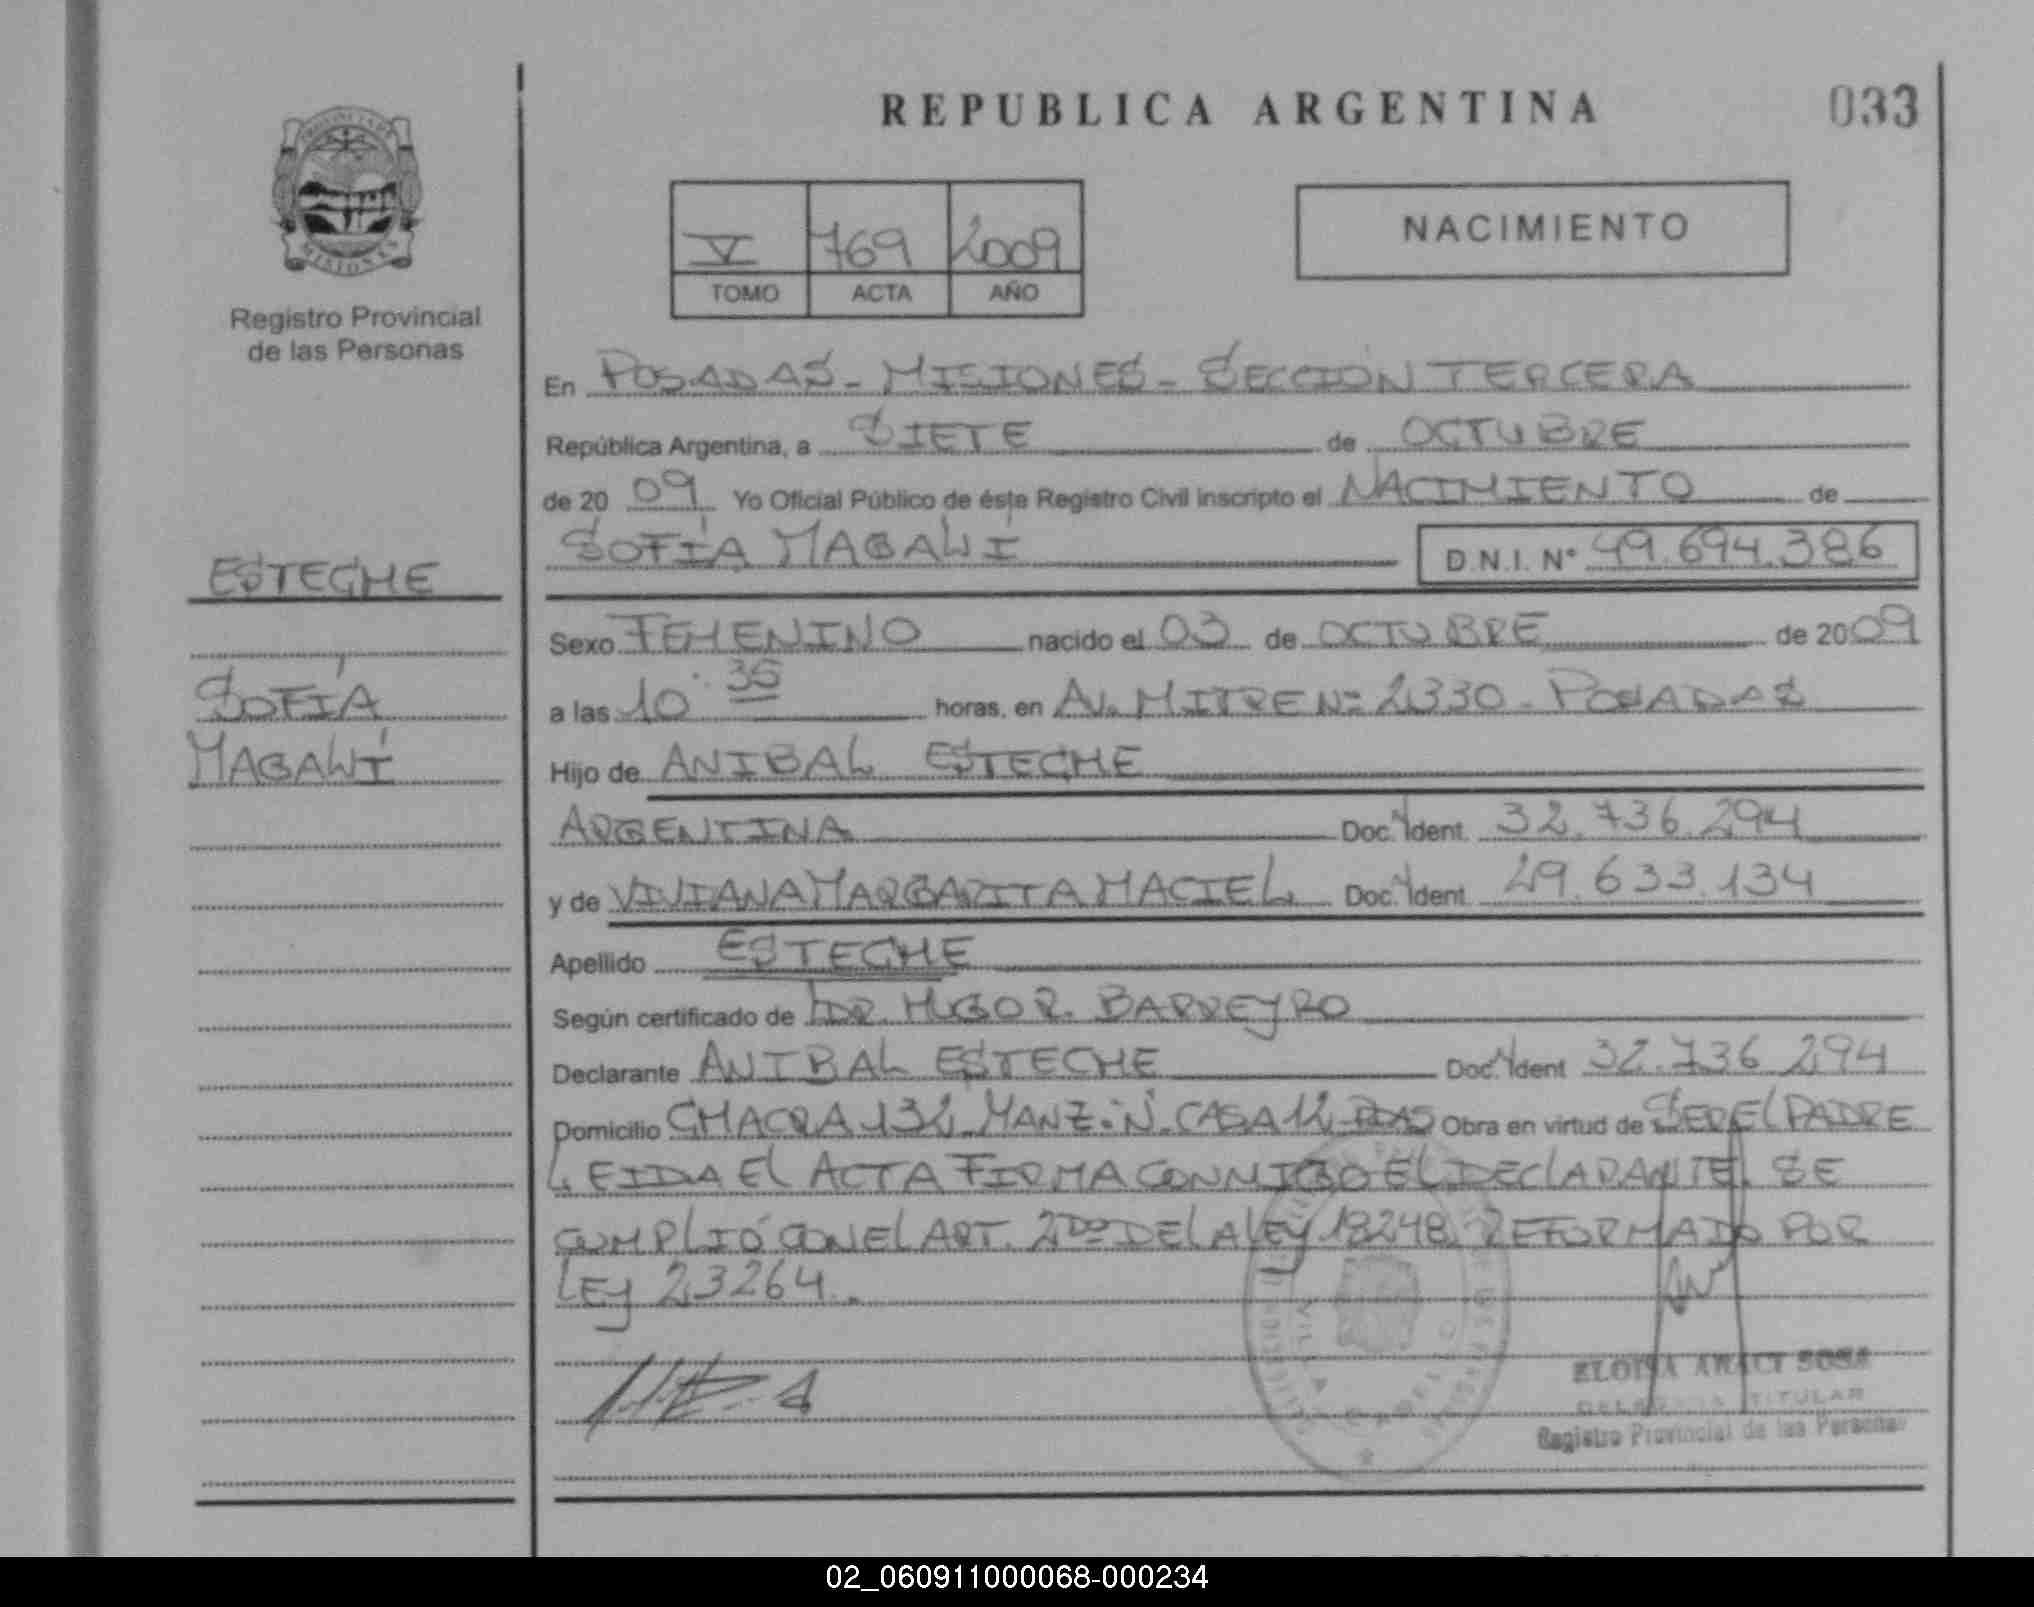 REPUBLICA ARGENTINA
033
PROVINCIA DE
MISIONES
Registro Provincial
de las Personas
V 769 2009
TOMO ACTA AÑO
NACIMIENTO
En POSADAS - MISIONES - SECCION TERCERA
República Argentina, a SIETE de OCTUBRE
de 20 09 Yo Oficial Público de éste Registro Civil inscripto el NACIMIENTO de
SOFÍA MAGALÍ D.N.I. Nº 49.694.386
ESTECHE
SOFÍA
MAGALÍ
Sexo FEMENINO nacido el 03 de OCTUBRE de 2009
a las 10:35 horas, en AV. MITRE Nº 2330 - POSADAS
Hijo de ANIBAL ESTECHE
ARGENTINA Doc. Ident. 32.736.294
y de VIVIANA MARGARITA MACIEL Doc. Ident. 29.633.134
Apellido ESTECHE
Según certificado de DR. HUGO R. BARREYRO
Declarante ANIBAL ESTECHE Doc. Ident 32.736.294
Domicilio CHACRA 132 MANZ. N. CASA 12 PDAS Obra en virtud de SER EL PADRE
LEIDA El ACTA FIRMA CONMIGO EL DECLARANTE. SE
CUMPLIÓ CON El ART. 2do DE LA LEy 18248 REFORMADO POR
LEy 23264.
ELOISA ARACI SOSA
DELEGADA TITULAR
Registro Provincial de las Personas
02_060911000068-000234